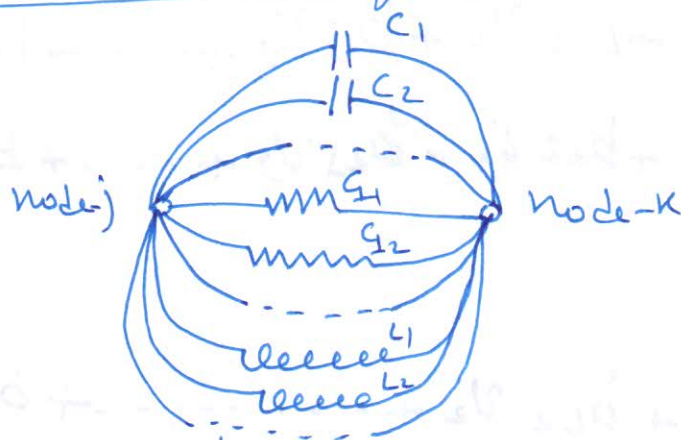 C1
C2
node-j
G1
node-k
G2
L1
L2